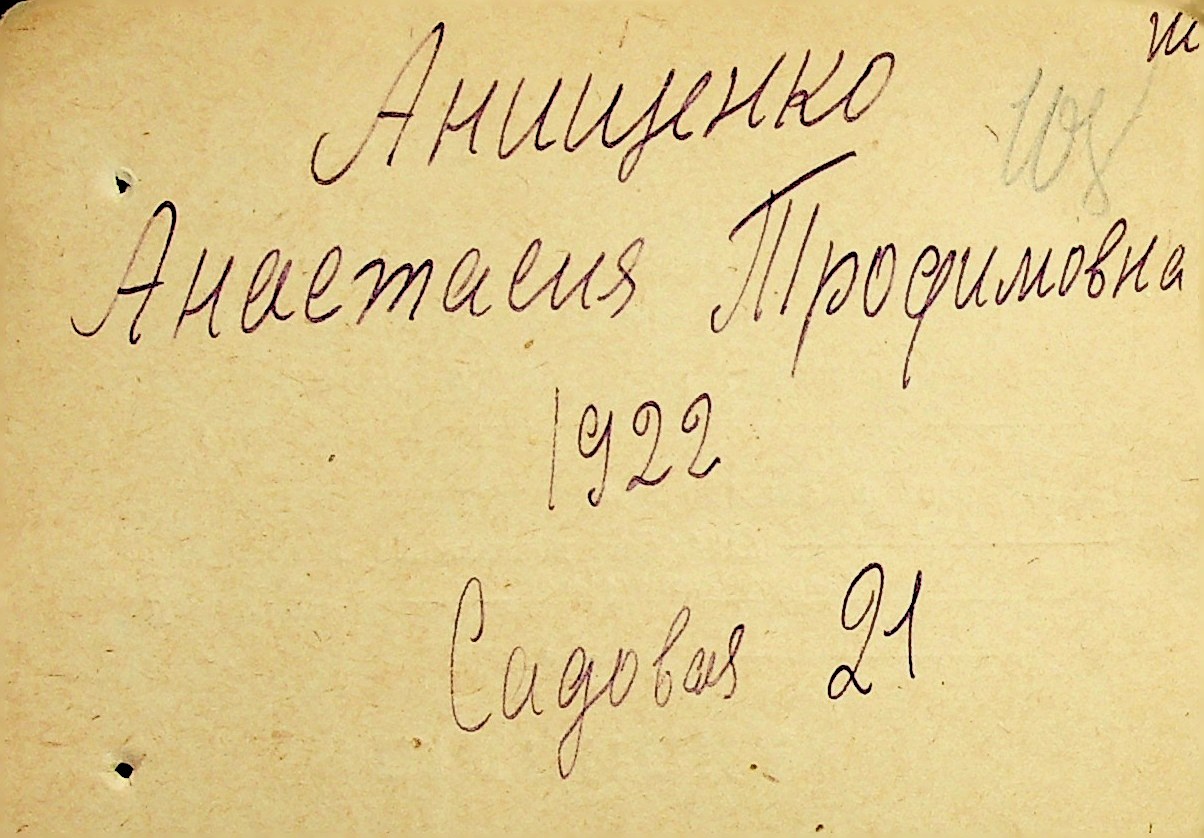 Анищенко
108
Анастасия Трофимовна
1922
Садовая 21